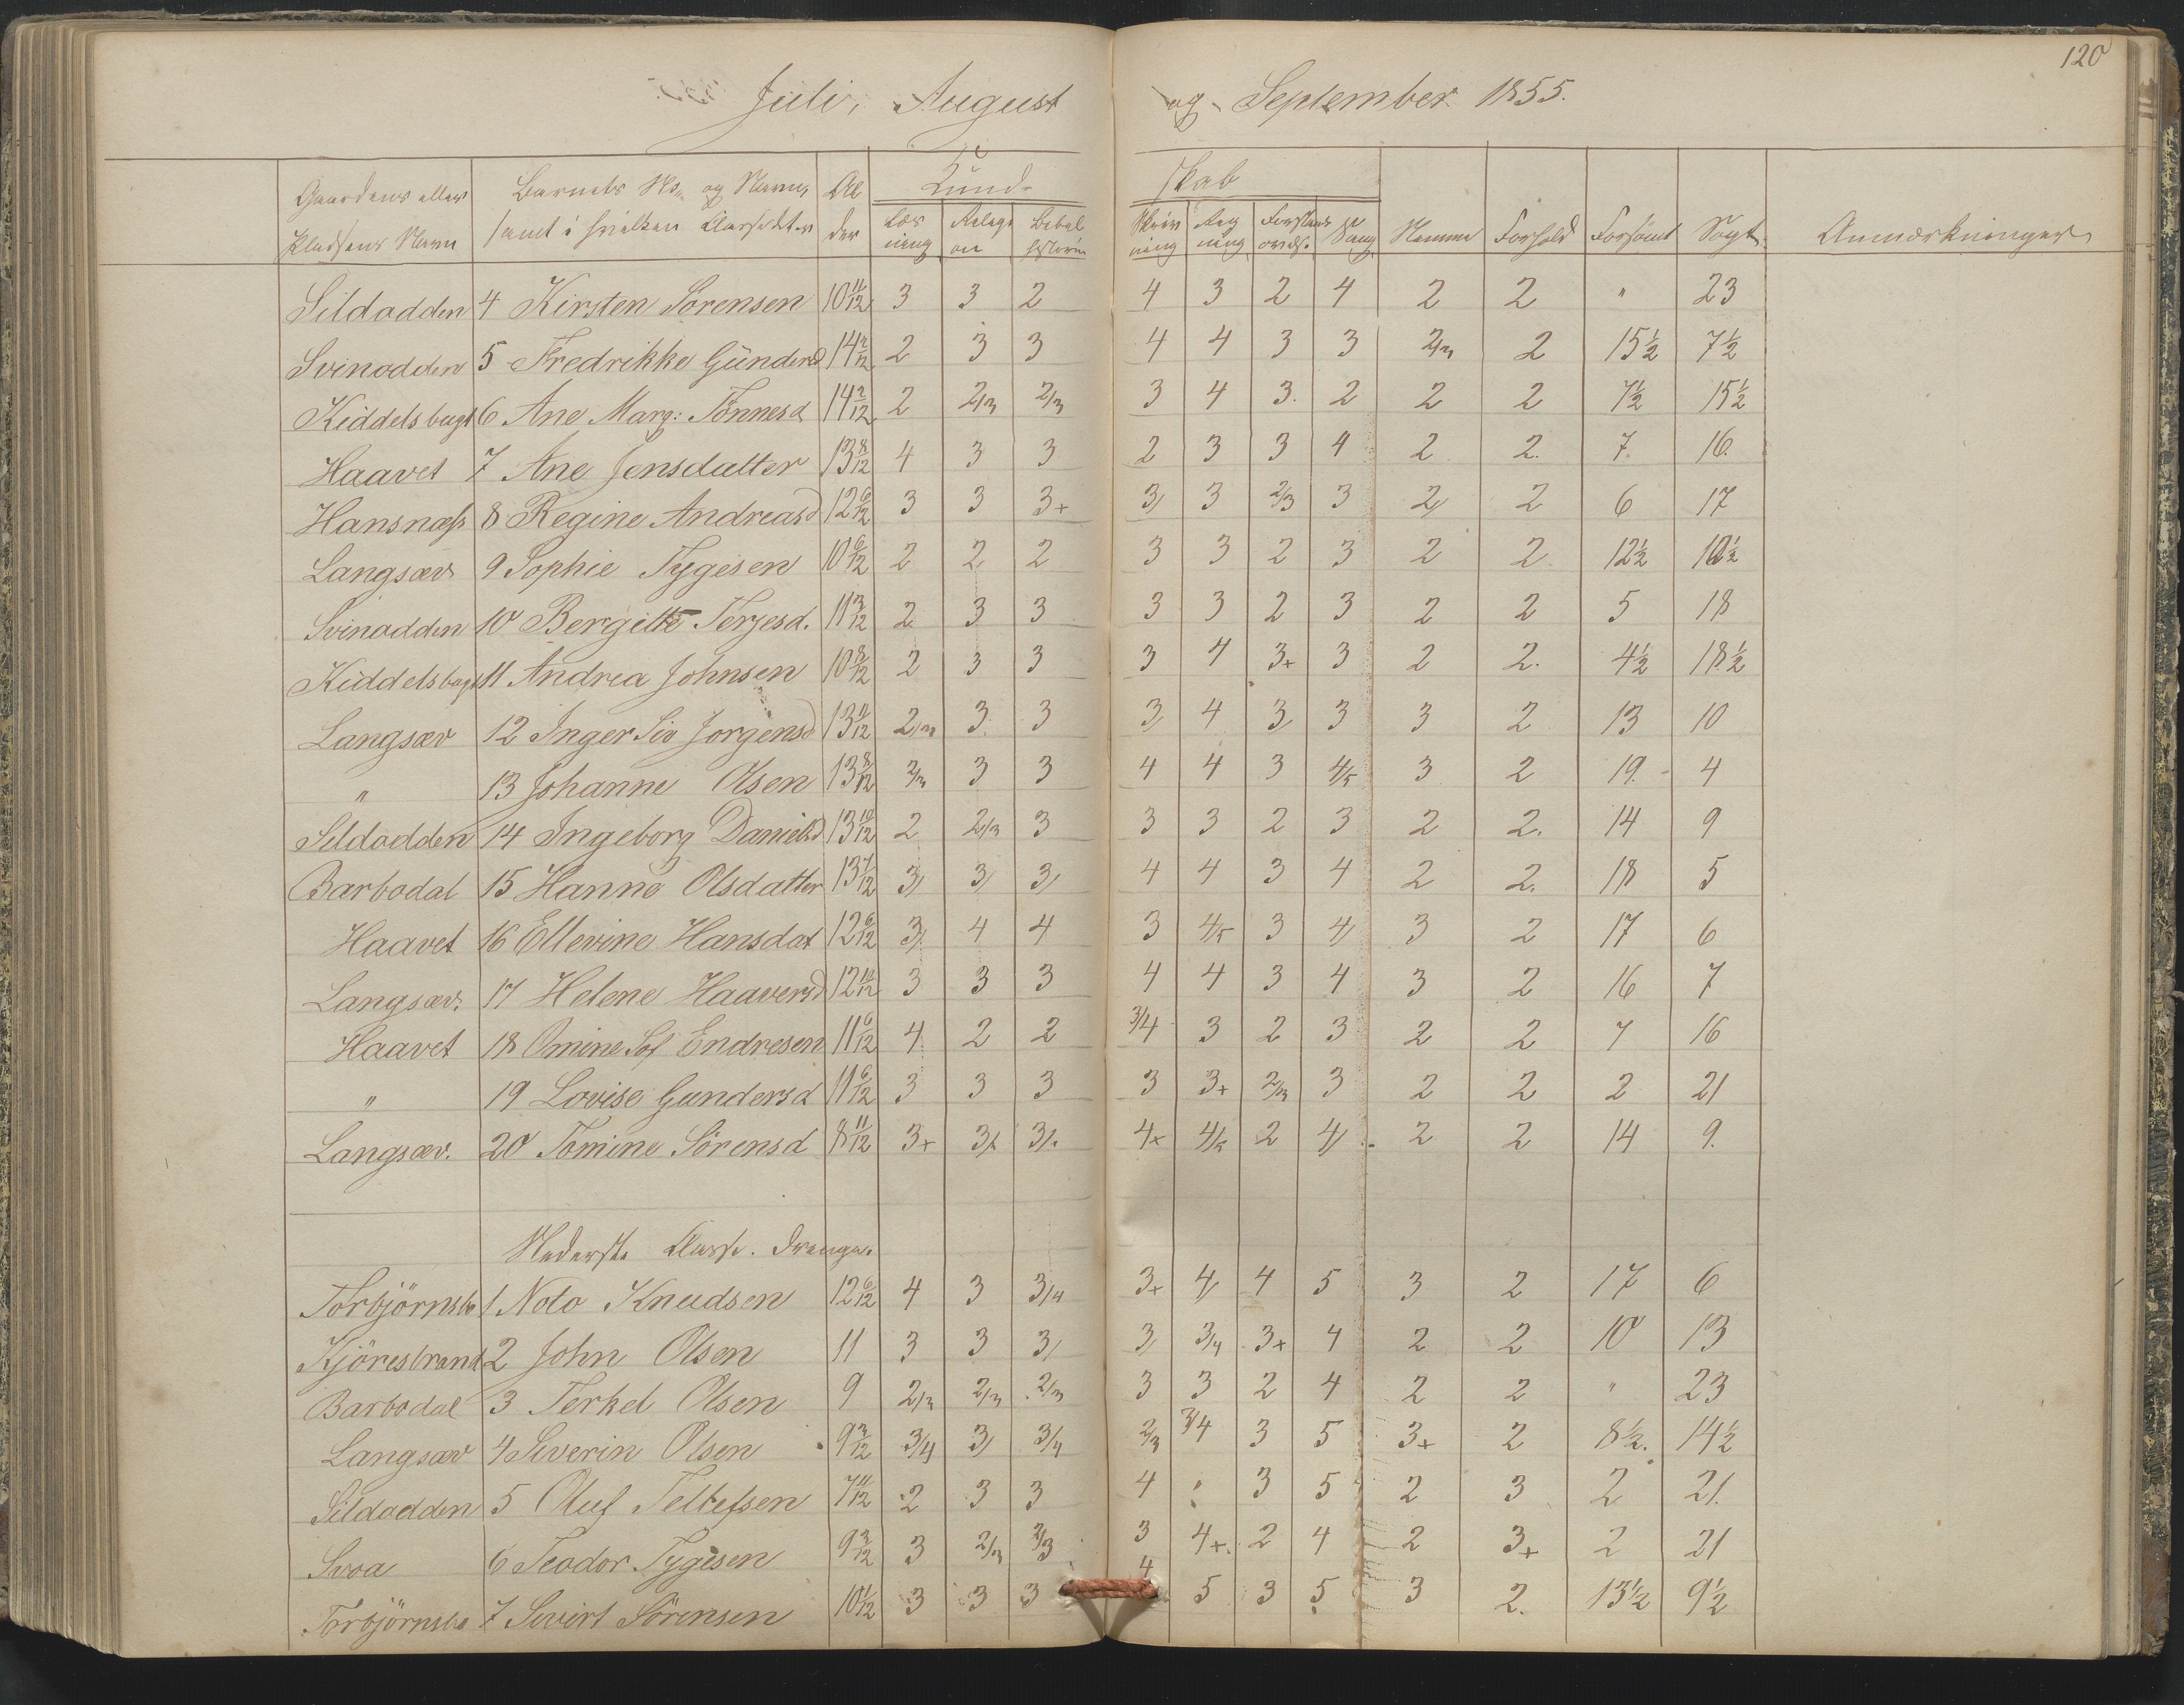 120
Juli, August og September 1855.
Gaardens eller Pladsens Navn | Barnets No. og Navn, samt i hvilken Classe det er | Al der | Kund- skab | Nemme | Forhold | Forsømt | Søgt | Anmærkninger
Læs ning | Religi on | Bibel historie | Skriv ning | Reg ning | Forstands øvelse | Sang
Sildodden 4 Kirsten Sörensen 10 11/12 3 3 2 4 3 2 4 2 2 " 23
Svinodden 5 Fredrikke Gündersd 14 2/12 2 3 3 4 4 3 3 2/3 2 15½ 7½
Kiddelsbugt 6 Ane Marg: Tönnesd 14 2/12 2 2/3 2/3 3 4 3. 2 2 2 7½ 15½
Haavet 7 Ane Jensdatter 13 8/12 4 3 3 2 3 3 4 2 2. 7. 16.
Hansnæss 8 Regine Andreasd 12 6/12 3 3 3+ 3/ 3 2/3 3 2/ 2 6 17
Langsæv 9 Sophie Tygesen 10 6/12 2 2 2 3 3 2 3 2 2. 12½ 10½
Svinodden 10 Bergitte Terjesd. 11 3/12 2 3 3 3 3 2 3 2 2 5 18
Kiddelsbugt 11 Andrea Johnsen 10 8/12 2 3 3 3 4 3+ 3 2 2. 4½ 18½
Langsæv 12 Inger Siv Jorgensd 13 11/12 2/3 3. 3 3/ 4 3/ 3 3 2 13 10
" 13 Johanne Olsen 13 8/12 2/3 3 3 4 4 3 4/5 3 2 19. 4
Sildodden 14 Ingeborg Danielsd 13 10/12 2 2/3 3 3 3 2 3 2 2. 14 9
Barbodal 15 Hanne Olsdatter 13 7/12 3/ 3/ 3/ 4 4 3 4 2 2. 18 5
Haavet 16 Ellevine Hansdat 12 6/12 3/. 4 4 3 4/5 3 4/ 3 2 17 6
Langsæv. 17 Helene Haaversd 12 11/12 3 3 3 4 4 3 4 3 2 16 7
Haavet 18 Omine Sof Endresen 11 6/12 4 2 2 3/4 3 2 3 2 2 7 16
" 19 Lovise Gundersd 11 6/12 3 3 3 3 3+ 2/3 3 2 2 2 21
Langsæv. 20 Tomine Sörensd 8 11/12 3+ 3/. 3/. 4+ 4/5 2 4/ 2 2 14 9.
Nederste Classe. Drenge.
Torbjörnsbo 1 Noto Knudsen 12 6/12 4 3 3/4 3+ 4/ 4 5 3 2 17 6
Kjöresbrand 2 John Olsen 11 3 3 3/ 3/ 3/4 3+ 4 2 2 10 13
Barbodal 3 Terkel Olsen 9 2/3 2/3 2/3 3 3 2 4 2 2 " 23
Langsæv 4 Severin Olsen 9 3/12 3/4 3/ 3/4 2/3 3/4 3 5 3+ 2 8½. 14½
Sildodden 5 Oluf Tellefsen 7 11/12 2 3 3 4 " 3 5 2 3 2 21.
Svoa 6 Teodor Tygesen 9 3/12 3 2/3 2/3 3 4+. 2 4 2 3+ 2 21
Torbjörnsbo 7 Sivert Sörensen 10 1/12 3 3 3 4 5 3 5 3 2. 13½ 9½